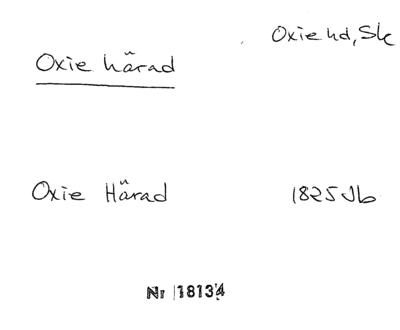 Oxie hd, Sk
Oxie härad
Oxie Härad 1825 Jb
Nr 18134